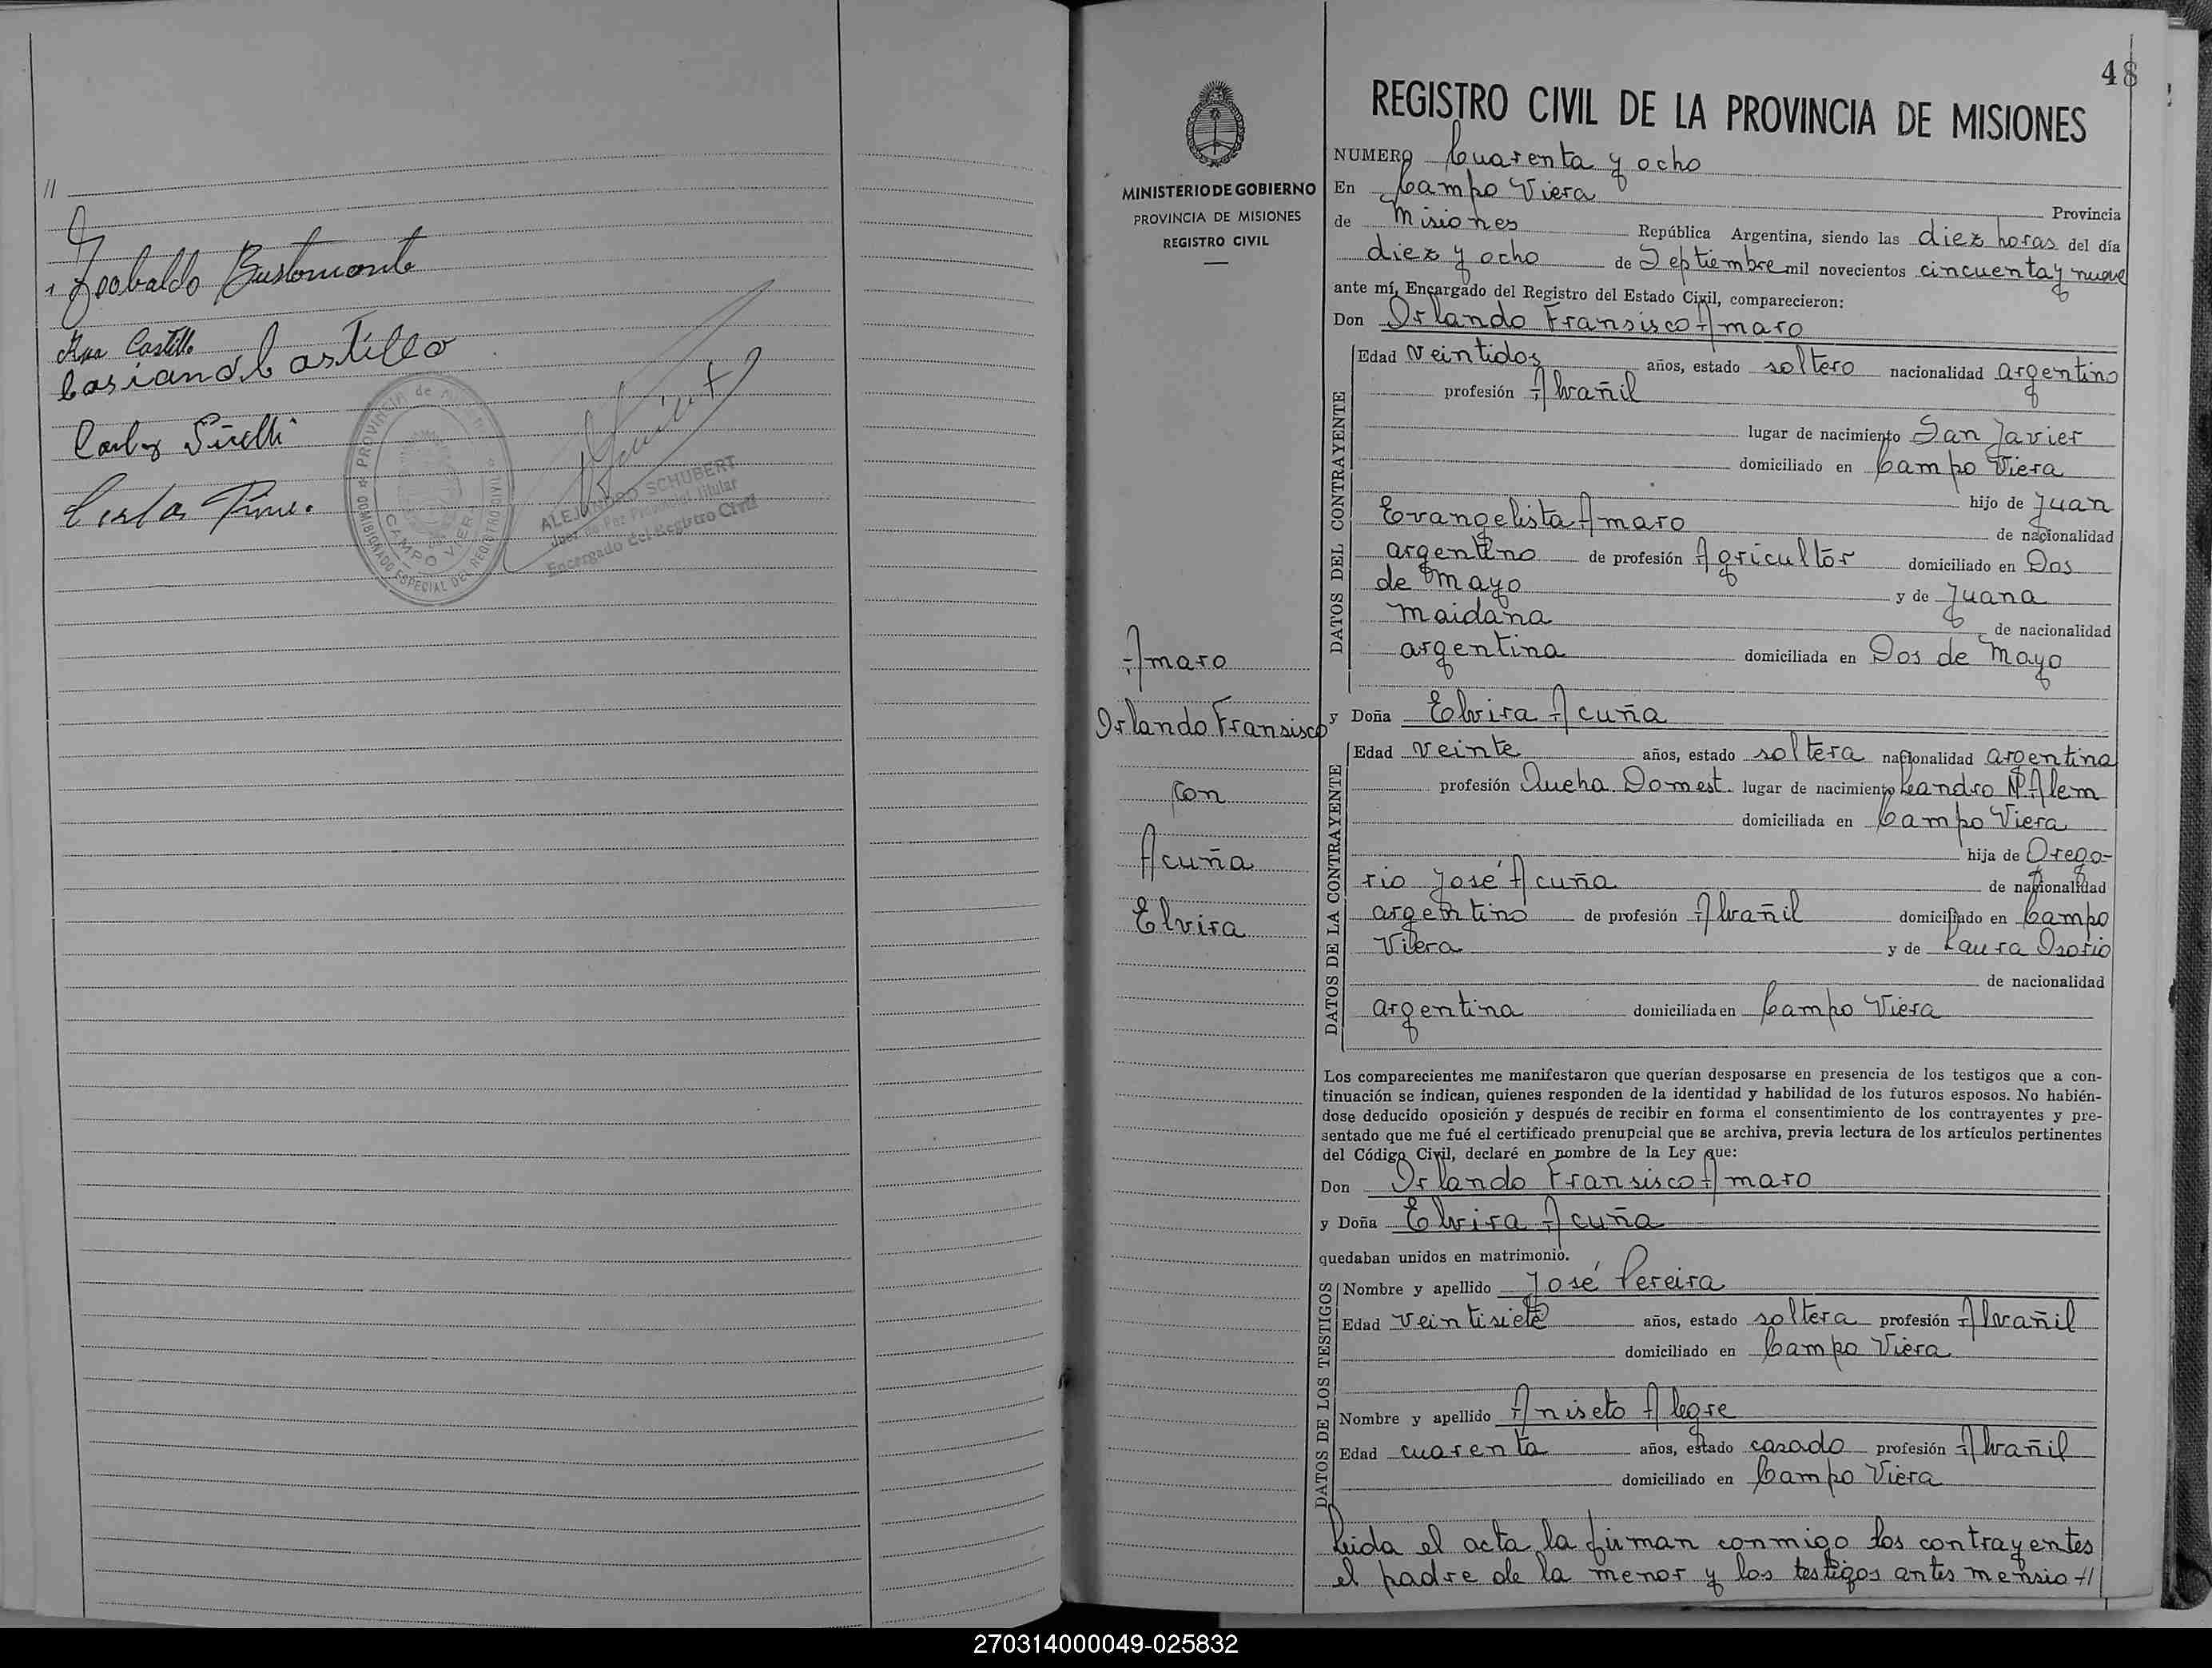 //
Teobaldo Bustamante
Ana Castillo
Casiano Castillo
Carlos
Carlos
PROVINCIA de
COMISIONADO ESPECIAL DEL REGISTRO CIVIL
CAMPO VIERA
ALEJANDRO SCHUBERT
Juez de Paz Provincial Titular
Encargado del Registro Civil
48
MINISTERIO DE GOBIERNO
PROVINCIA DE MISIONES
REGISTRO CIVIL
Amaro
Orlando Fransisco
Con
Acuña
Elvira
REGISTRO CIVIL DE LA PROVINCIA DE MISIONES
NUMERO Cuarenta y ocho
En Campo Viera Provincia
de Misiones República Argentina, siendo las diez horas del día
diez y ocho de Septiembre mil novecientos cincuenta y nueve
ante mí, Encargado del Registro del Estado Civil, comparecieron:
Don Orlando Fransisco Amaro
DATOS DEL CONTRAYENTE
Edad veintidos años, estado soltero nacionalidad argentino
profesión Alvañil
lugar de nacimiento San Javier
domiciliado en Campo Viera
hijo de Juan
Evangelista Amaro de nacionalidad
argentino de profesión Agricultor domiciliado en Dos
de Mayo y de Juana
Maidana de nacionalidad
argentina domiciliada en Dos de Mayo
y Doña Elvira Acuña
DATOS DE LA CONTRAYENTE
Edad veinte años, estado soltera nacionalidad argentina
profesión Queha. Domest. lugar de nacimiento Leandro N. Alem
domiciliada en Campo Viera
hija de Grego-
rio José Acuña de nacionalidad
argentino de profesión Alvañil domiciliado en Campo
Viera y de Laura Osorio
de nacionalidad
argentina domiciliada en Campo Viera
Los comparecientes me manifestaron que querían desposarse en presencia de los testigos que a con-
tinuación se indican, quienes responden de la identidad y habilidad de los futuros esposos. No habién-
dose deducido oposición y después de recibir en forma el consentimiento de los contrayentes y pre-
sentado que me fué el certificado prenupcial que se archiva, previa lectura de los artículos pertinentes
del Código Civil, declaré en nombre de la Ley que:
Don Orlando Fransisco Amaro
y Doña Elvira Acuña
quedaban unidos en matrimonio.
DATOS DE LOS TESTIGOS
Nombre y apellido José Pereira
Edad veintisiete años, estado soltera profesión Alvañil
domiciliado en Campo Viera
Nombre y apellido Aniseto Alegre
Edad cuarenta años, estado casado profesión Alvañil
domiciliado en Campo Viera
Leida el acta la firman conmigo los contrayentes
el padre de la menor y los testigos antes mensio-//
270314000049-025832